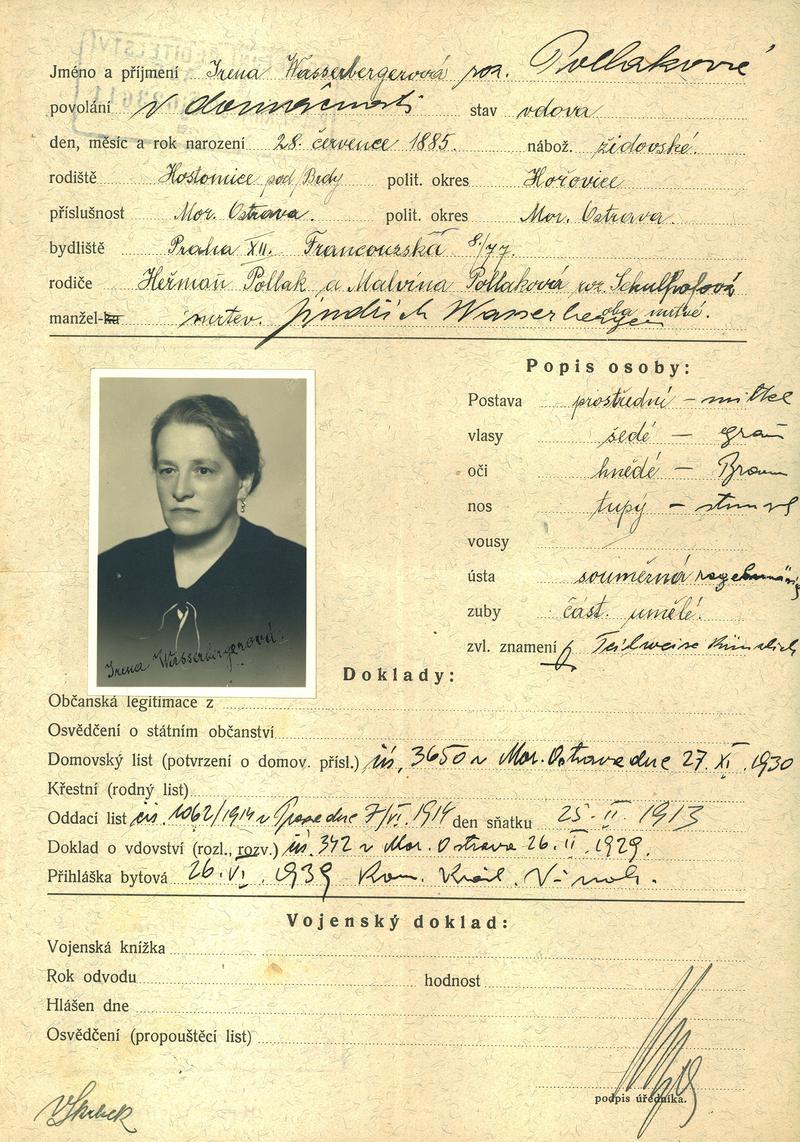 Jméno a příjmení Irena Wasserbergerová roz. Pollakové
povolání v domácnosti stav vdova
den, měsíc a rok narození 28. července 1885. nábož. židovské.
rodiště Hostomice pod Brdy polit. okres Hořovice
příslušnost Mor. Ostrava. polit. okres Mor. Ostrava.
bydliště Praha XII. Francouzská 8/77.
rodiče Heřman Pollak a Malvina Pollaková roz. Schulhofová
oba mrtvé.
manžel-ka mrtev. Jindřich Wasserberger
Popis osoby:
Postava prostřední - mittel
vlasy šedé - grau
oči hnědé - Braun
nos tupý - stumpf
vousy
ústa souměrná regelmäsig
zuby část. umělé.
zvl. znamení Teilweise Künstlich
Irena Wasserbergerová.
Doklady:
Občanská legitimace z
Osvědčení o státním občanství
Domovský list (potvrzení o domov. přísl.) čís. 3650 v Mor. Ostrava dne 27. XI. 1930
Křestní (rodný list)
Oddací list čís. 1062/1914 v dne 7/VI. 1914 den sňatku 25. II. 1913
Doklad o vdovství (rozl., rozv.) čís. 342 v Mor. Ostrava 26. II. 1929.
Přihláška bytová 26. VI. 1939 Kom.
Vojenský doklad:
Vojenská knížka
Rok odvodu hodnost
Hlášen dne
Osvědčení (propouštěcí list)
podpis úředníka.